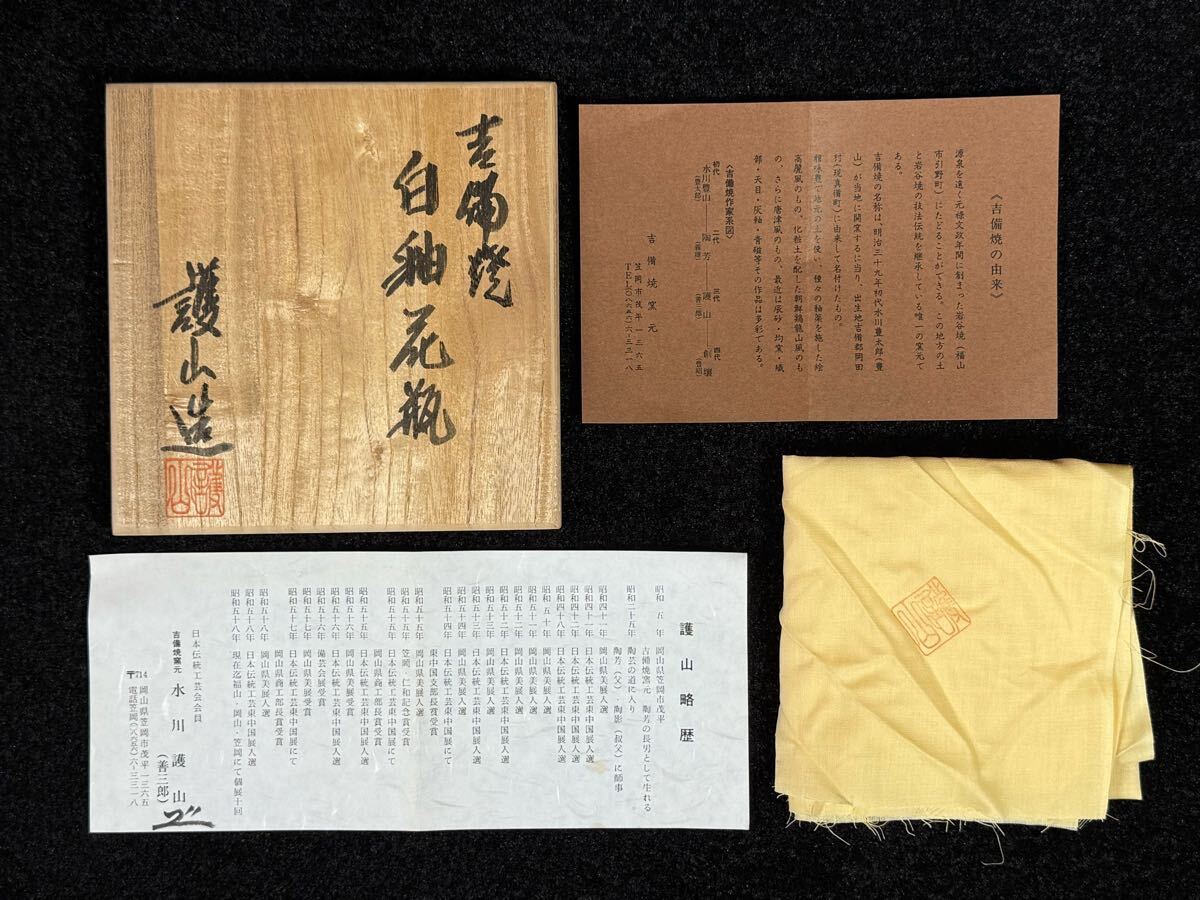 吉備焼
白釉花瓶
護山造
護山
《吉備焼の由来》
源泉を遠く元禄文政年間に創まった岩谷焼(福山
市引野町)にたどることができる。この地方の土
と岩谷焼の技法伝統を継承している唯一の窯元で
ある。
吉備焼の名称は、明治三十九年初代水川豊太郎(豊
山)が当地に開窯するに当り、出生地吉備郡岡田
村(現真備町)に由来して名付けたもの。
種々の釉薬を施した絵
高麗風のもの、化粧土を配した朝鮮鶏龍山風のも
の、さらに唐津風のもの、最近は辰砂・均窯・織
部・天目・灰釉・青磁等その作品は多彩である。
《吉備焼作家系図》
初代 二代 三代 四代
水川豊山――陶芳――護山――創壌
(豊太郎) (善三郎)
吉備焼窯元
笠岡市茂平一三六五
TEL〇八六五六六-三三一八
護山略歴
昭和五年 岡山県笠岡市茂平
吉備焼窯元 陶芳の長男として生れる
昭和二十五年 陶芸の道に入り
陶芳(父)・陶影(叔父)に師事
昭和四十一年 岡山県美展入選
昭和四十二年 日本伝統工芸東中国展入選
昭和四十八年 日本伝統工芸東中国展入選
昭和五十年 岡山県美展入選
昭和五十一年 岡山県美展入選
昭和五十二年 岡山県美展入選
昭和五十二年 日本伝統工芸東中国展入選
昭和五十三年 日本伝統工芸東中国展入選
昭和五十四年 岡山県美展入選
昭和五十四年 日本伝統工芸東中国展にて
東中国支部長賞受賞
昭和五十五年 岡山県美展入選
昭和五十五年 笠岡・仁和記念賞受賞
昭和五十五年 日本伝統工芸東中国展にて
岡山県商工部長賞受賞
昭和五十五年 日本伝統工芸東中国展入選
昭和五十六年 岡山県美展受賞
昭和五十六年 日本伝統工芸東中国展入選
昭和五十六年 備芸会展受賞
昭和五十七年 岡山県美展受賞
昭和五十七年 日本伝統工芸東中国展にて
岡山県商工部長賞受賞
昭和五十八年 岡山県美展入選
昭和五十八年 日本伝統工芸東中国展入選
昭和五十八年 現在迄福山・岡山・笠岡にて個展十回
日本伝統工芸会会員
吉備焼窯元 水川護山
(善三郎)
〒714 岡山県笠岡市茂平一三六五
電話笠岡(〇八六五六)六-三三一八
護山